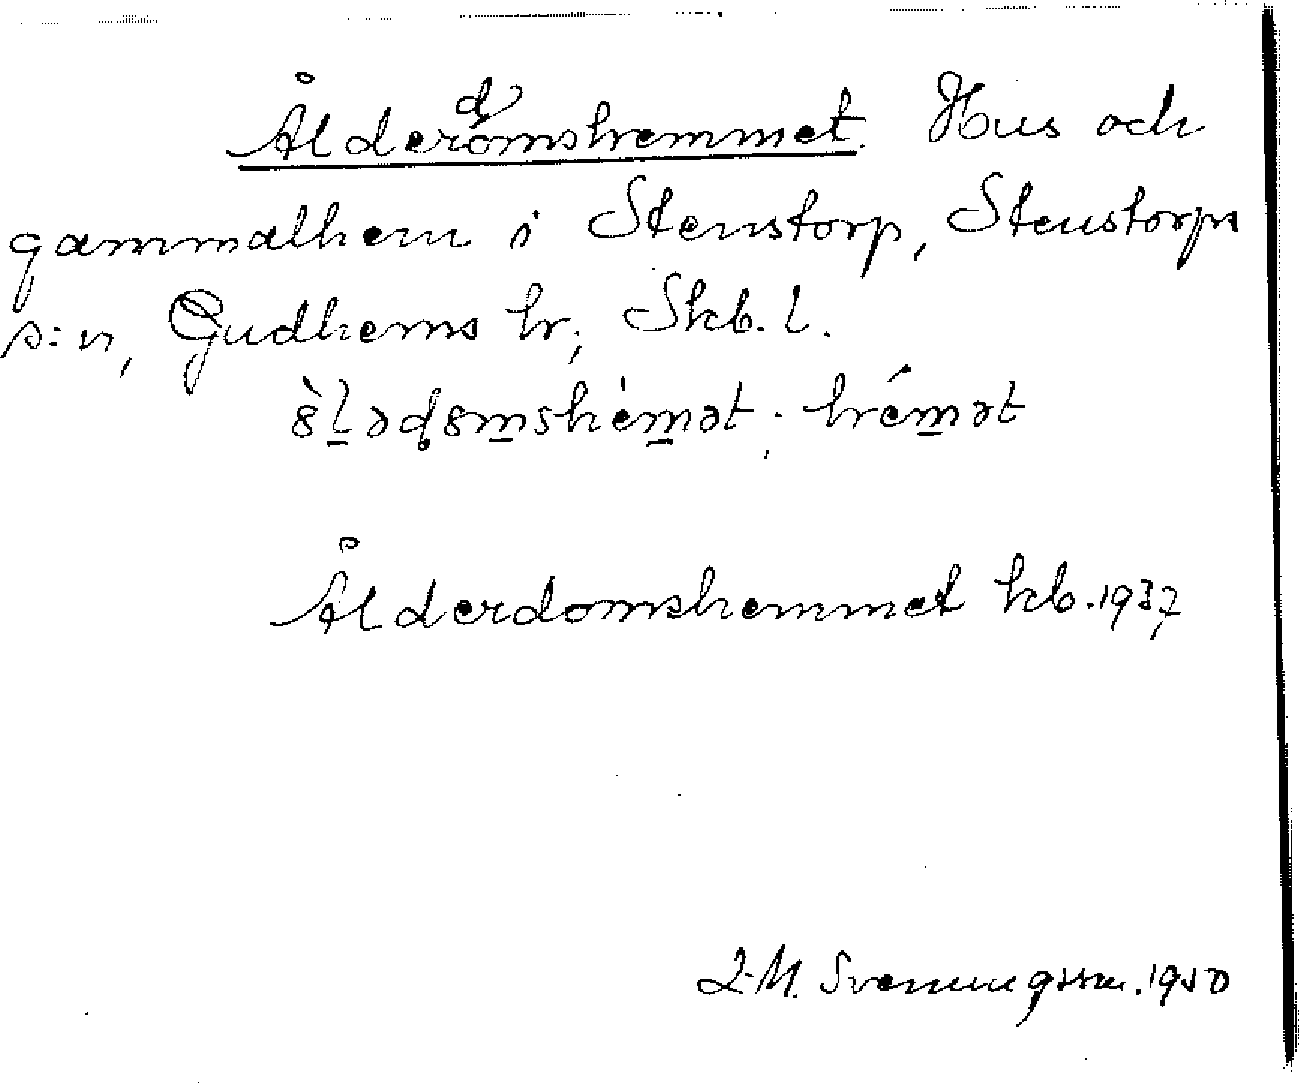 Ålderdomshemmet. Hus och
gammalhem i Stenstorp, Stenstorps
s:n, Gudhems hr, Skb. l.
hémət
Ålderdomshemmet kb. 1937
Svenungsson. 1950